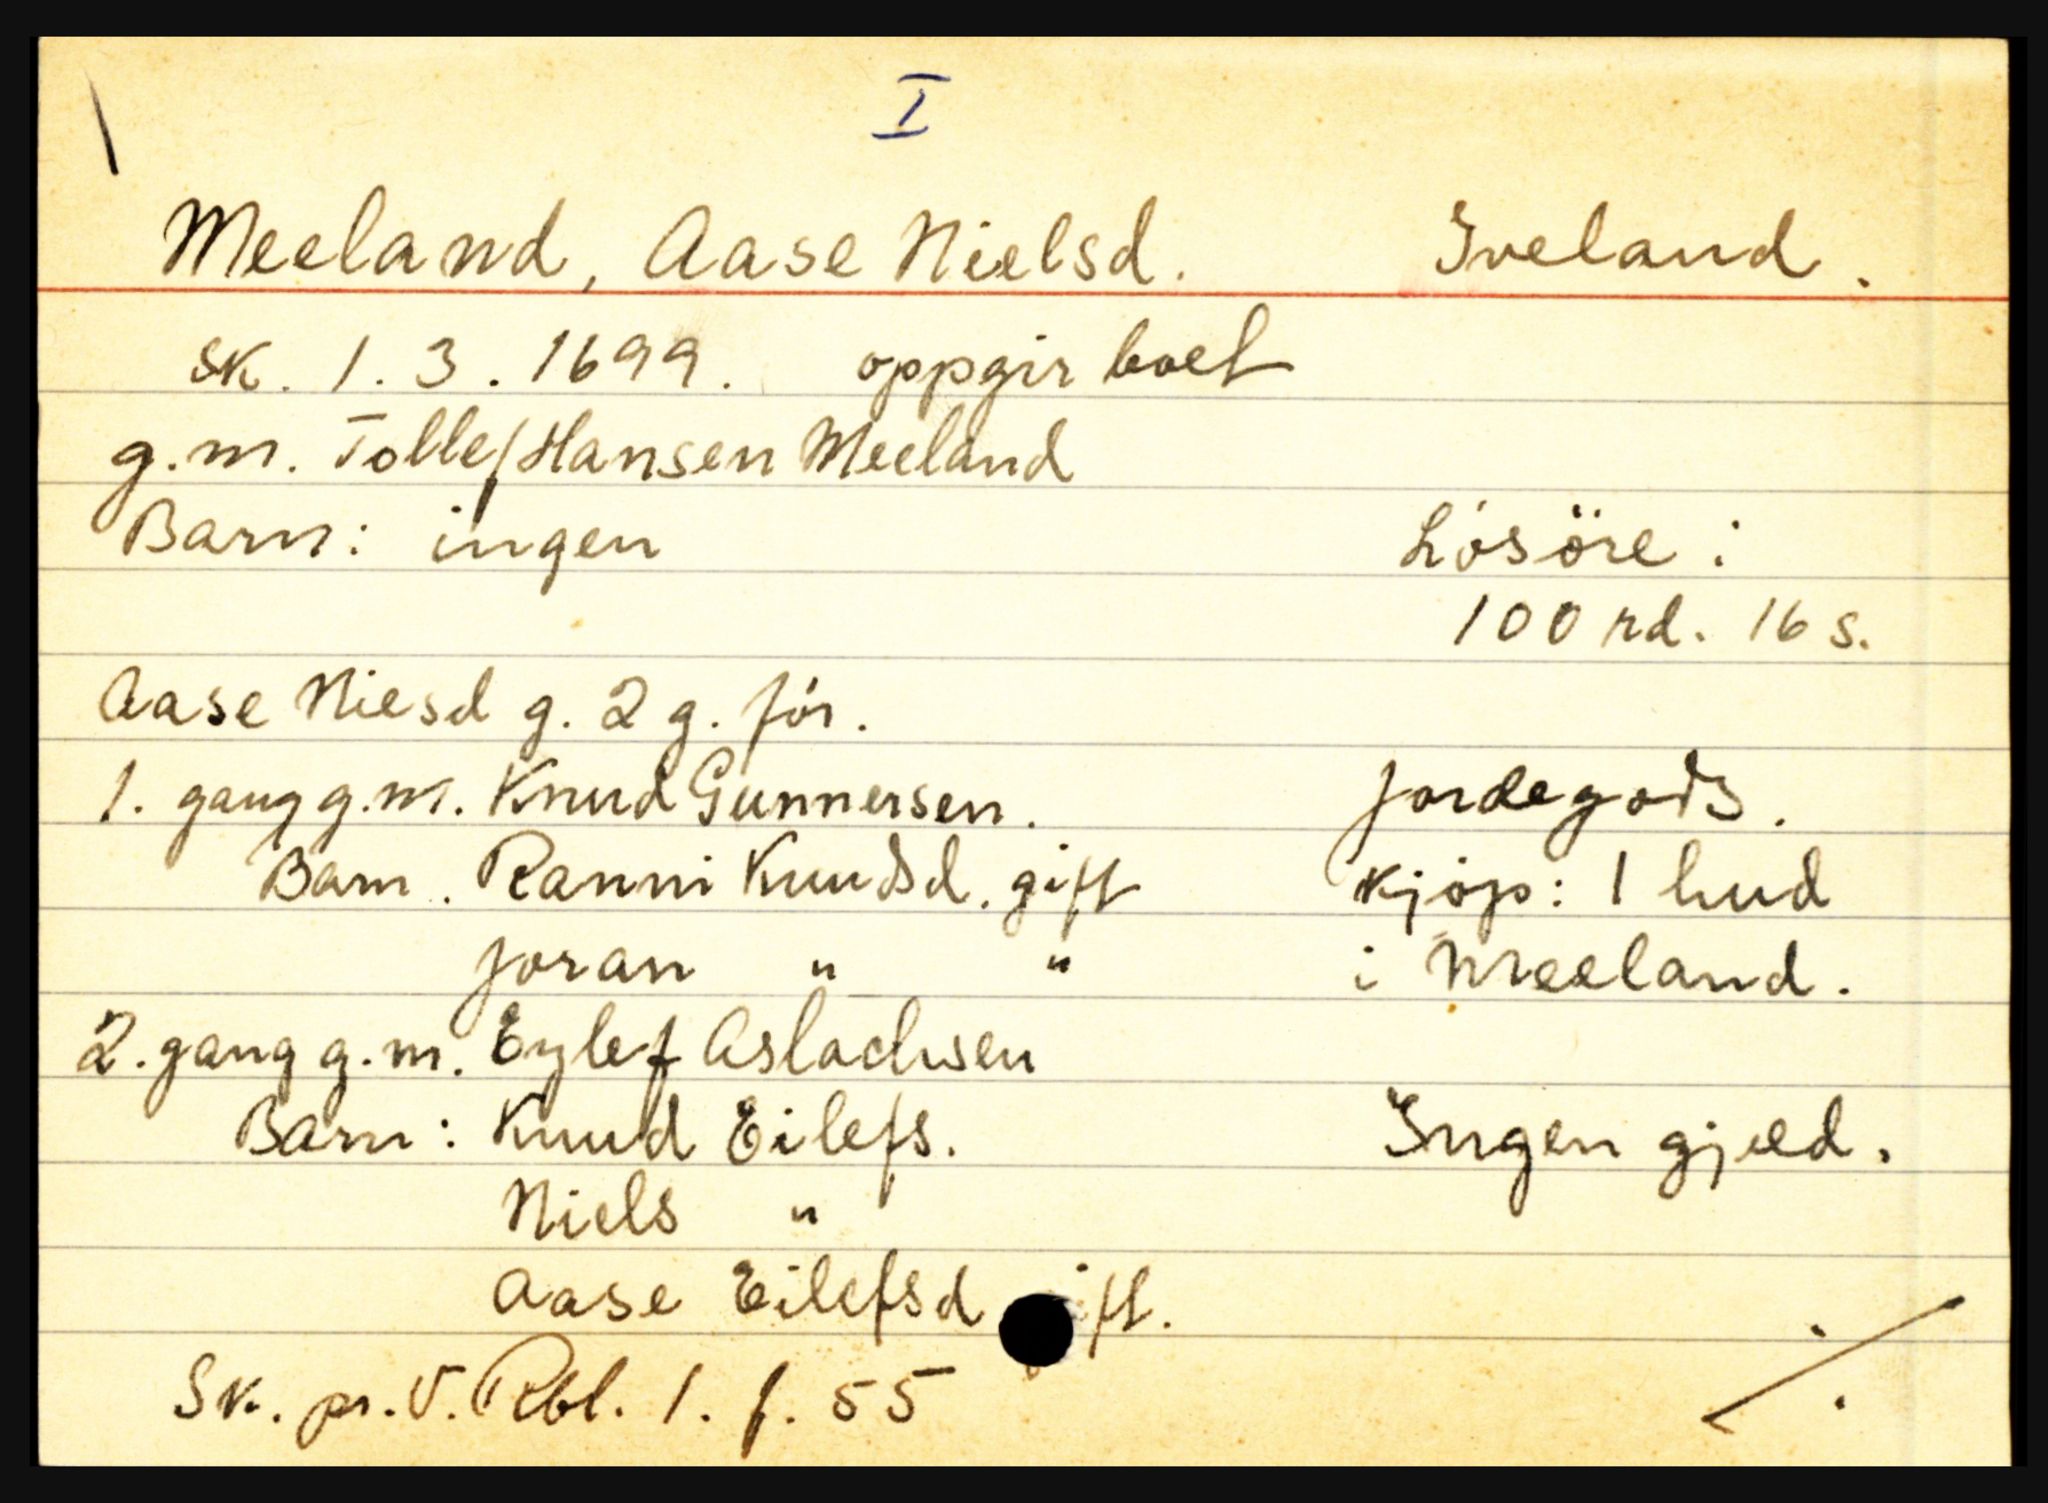 I
Meeland, Aase Nielsd. Iveland.
sk. 1.3.1699. oppgir boet
g.m. Tollef Hansen Meeland
Barn: ingen Lösöre:
100 rd. 16 s.
Aase Niesd g. 2 g. för.
1. gang g.m. Knud Gunnersen. Jordegods.
Barn. Ranni Knudsd. gift kjöp: 1 hud
Joran " " i Meeland.
2. gang g.m. Eylef Aslachsen
Barn: Knud Eilefs. Ingen gjæld.
Niels "
Aase Eilefsd gift.
Sk. pr. V. Rbl. 1. f. 55 ./.